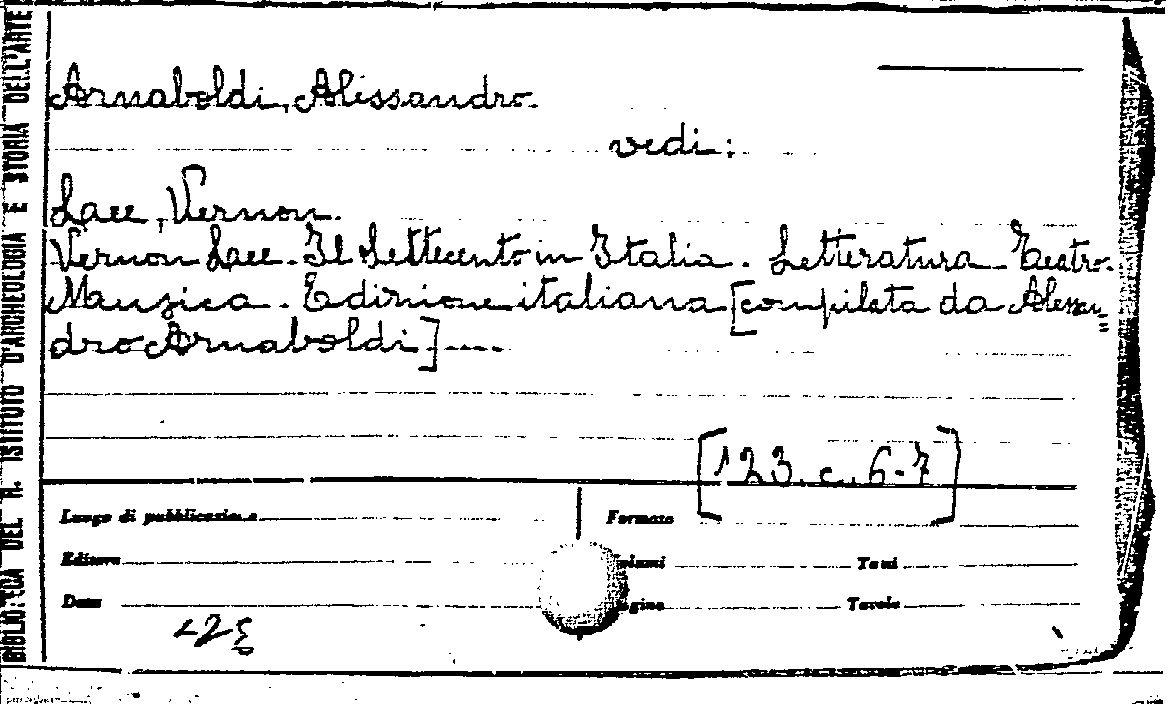 BIBLIOTECA DEL R. ISTITUTO D'ARCHEOLOGIA E STORIA DELL'ARTE
Arnaboldi, Alessandro.
vedi:
Laee, Vernon.
Vernon Laee. Il Settecento in Italia. Letteratura. Teatro.
Mausica. Edizione italiana [compilata da Alessan=
dro Arnaboldi]....
[123. c. 6-7]
Luogo di pubblicazione Formato
Editore Volumi Tomi
Data Pagine Tavole